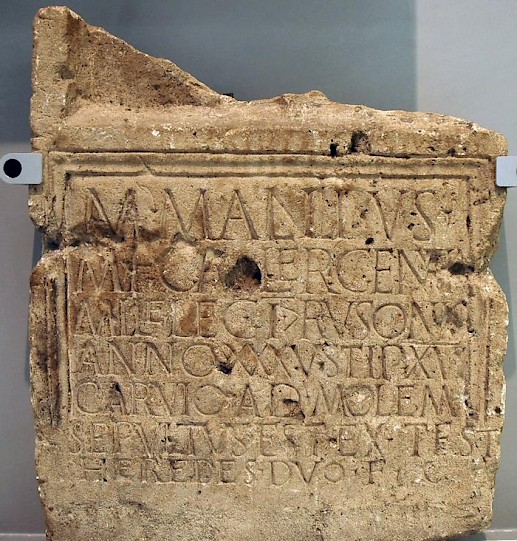 M·MALLIVS
M·F·GALER·GENV
MIL·LEG·I·Ɔ·RVSON
ANNO·XXXV·STIP·XVI
CARVIO·AD·MOLEM
SEPVLTVS·EST·EX·TEST
HEREDES·DVO·F·C